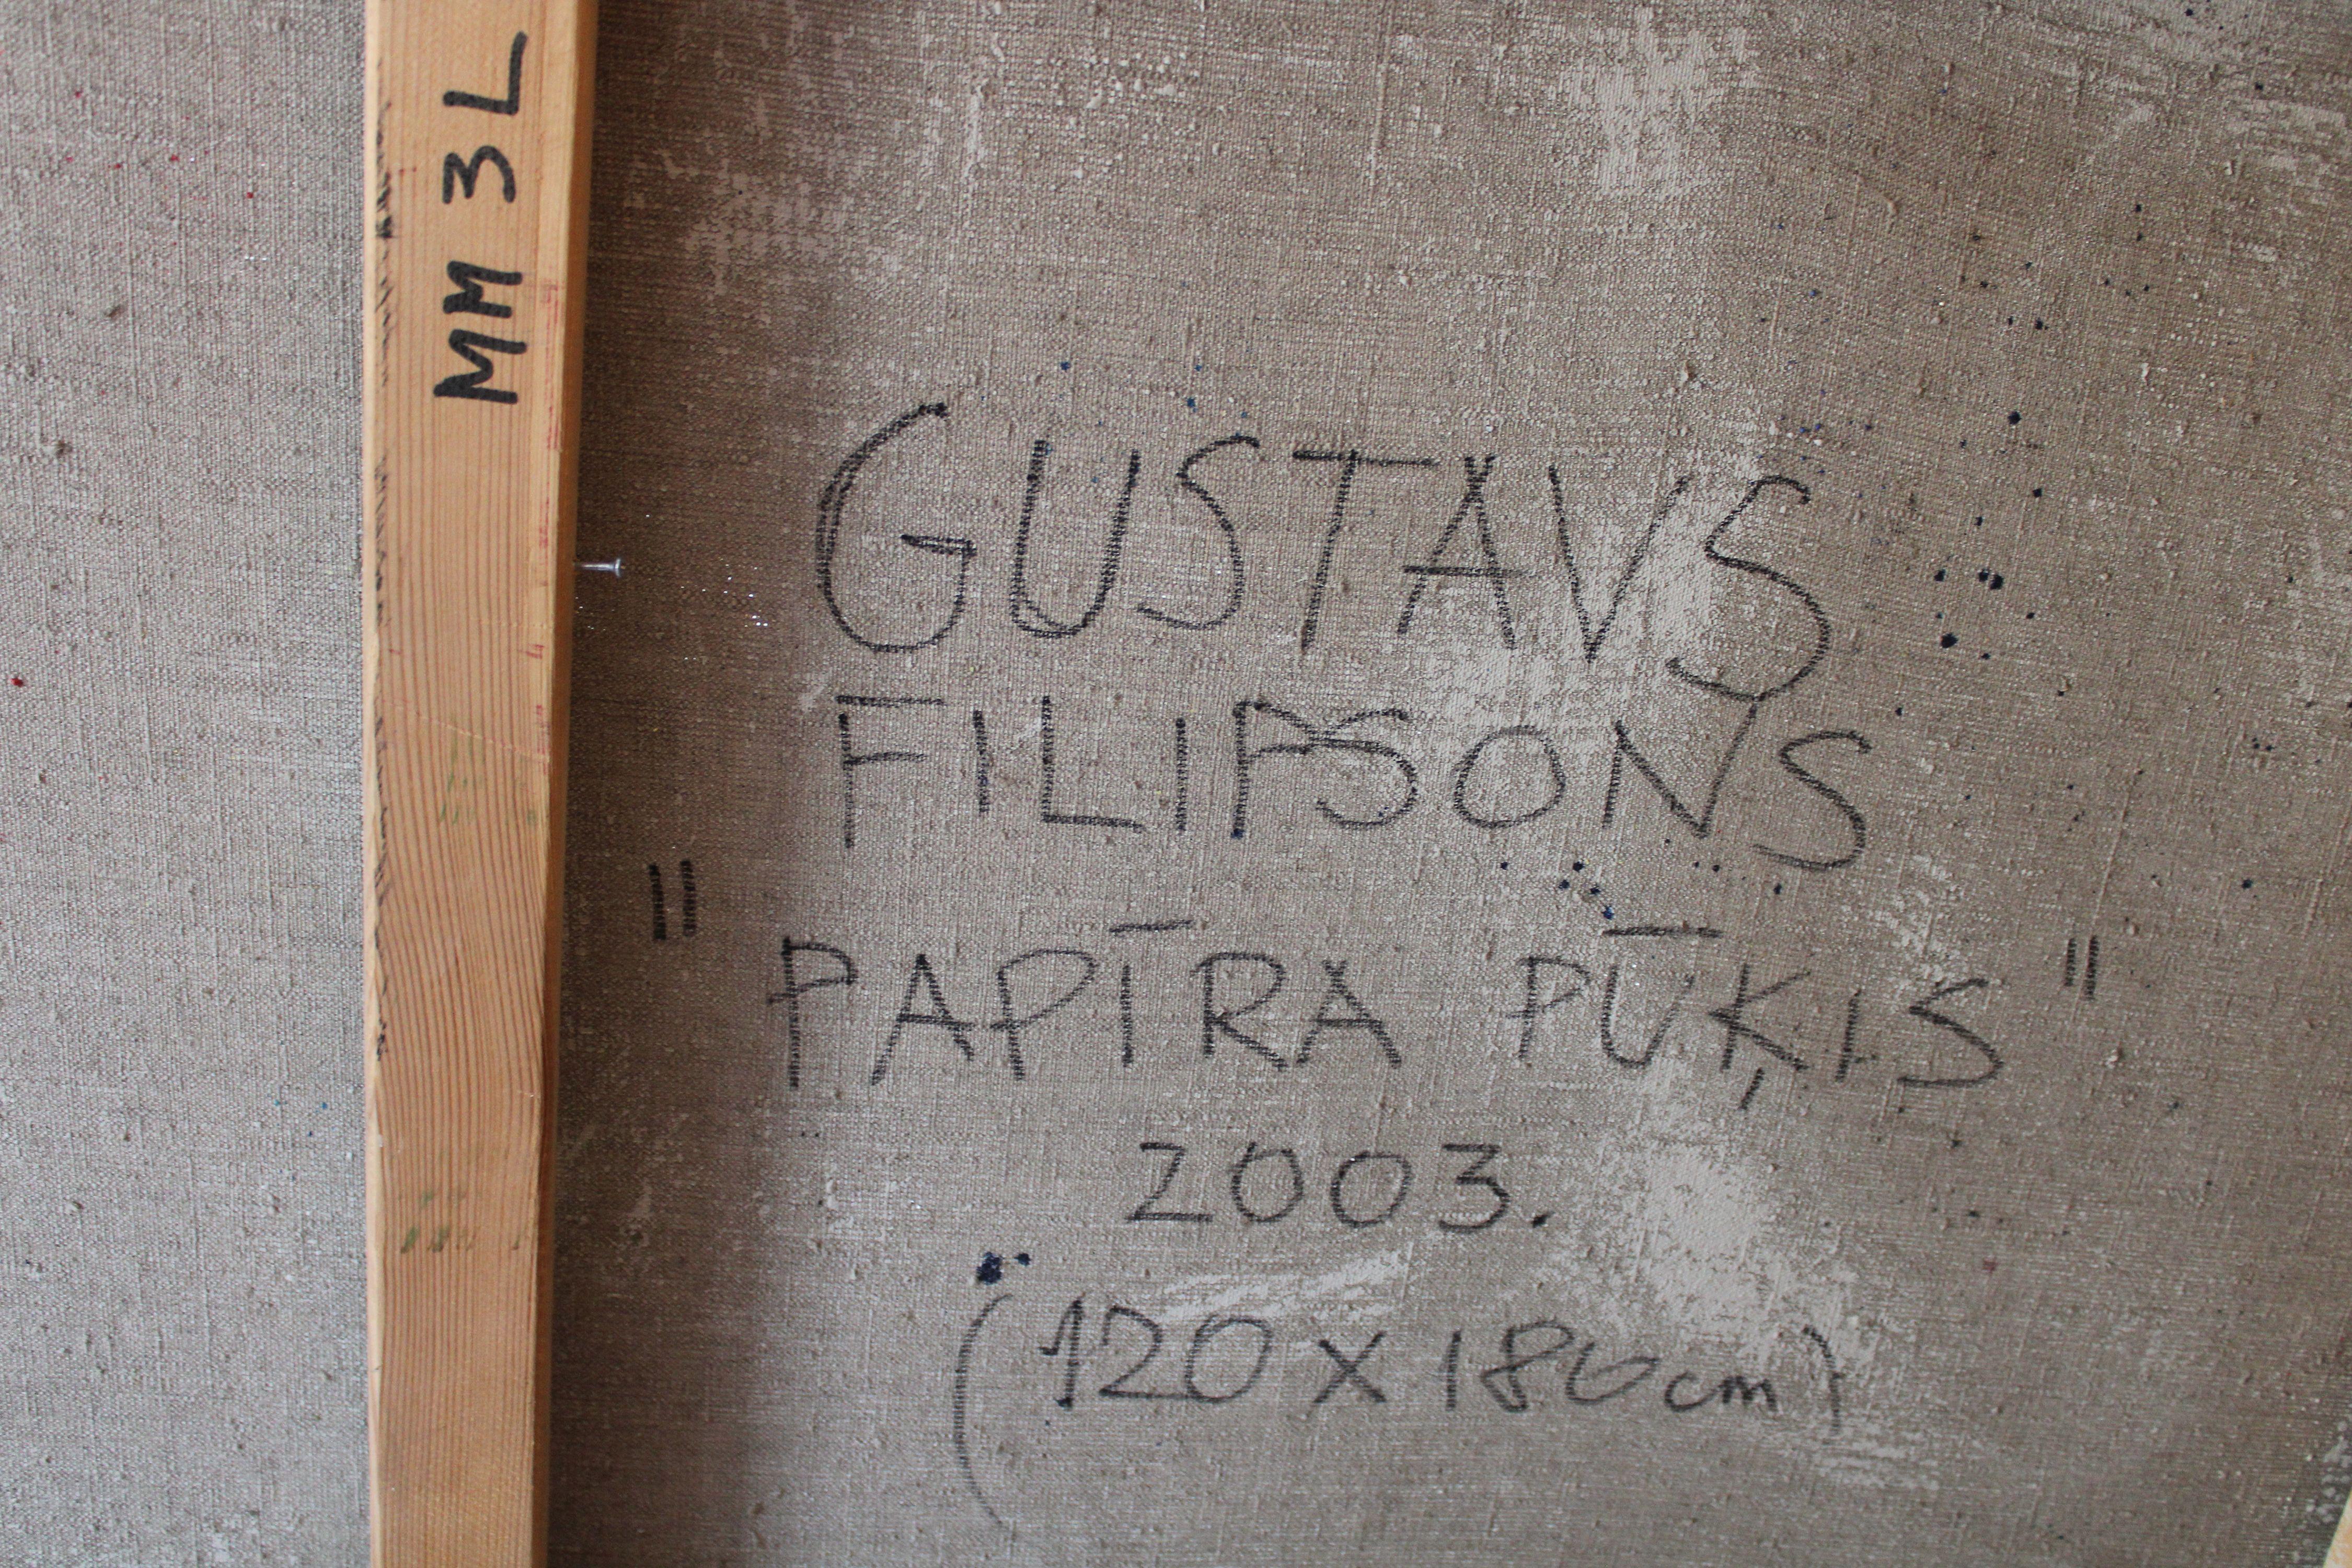 MM 3 L
GUSTAVS
FILIPSONS
" PAPĪRA PŪĶIS "
2003.
(120 x 180 cm)